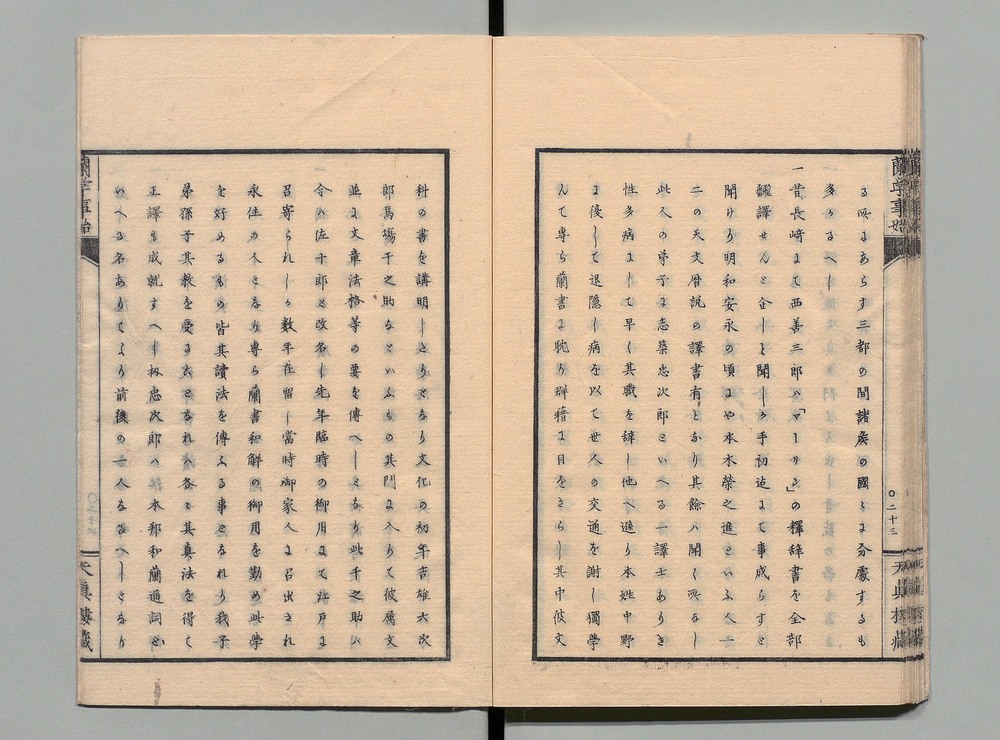 蘭学事始
〇二十三
天真楼蔵
る所にあらす三都の間諸矦の國々に分處するも
多かるへし
一昔長﨑にて西善三郎ハ「マーリン」の釋辞書を全部
飜譯せんと企しと聞しか手初迄にて事成らすと
聞けり明和安永の頃にや本木榮之進といふ人一
二の天文暦説の譯書有となり其餘ハ聞く所なし
此人の弟子に志築忠次郎といへる一譯士ありき
性多病にして早く其職を辞し他へ遜り本姓中野
に復して退隠し病を以て世人の交通を謝し獨学
んて専ら蘭書に耽り群籍に目をさらし其中彼文
科の書を講明しとりとなり文化の初年吉雄六次
郎馬塲千之助なといふもの其門に入りて彼属文
並に文章法格等の要を傳へしとなり此千之助ハ
今ハ佐十郎と改名し先年臨時の御用にて江戸に
召寄られしか数年在留し當時御家人に召出され
永住の人となり専ら蘭書和解の御用を勤め此学
を好めるもの皆其讀法を傳ふる事となれり我子
弟孫子其教を受ることなれハ各々其真法を得て
正譯も成就すへし扨忠次郎ハ本邦和蘭通詞と
いへる名ありてより前後の一人なるへしとなり
蘭学事始
〇二十
天真楼蔵